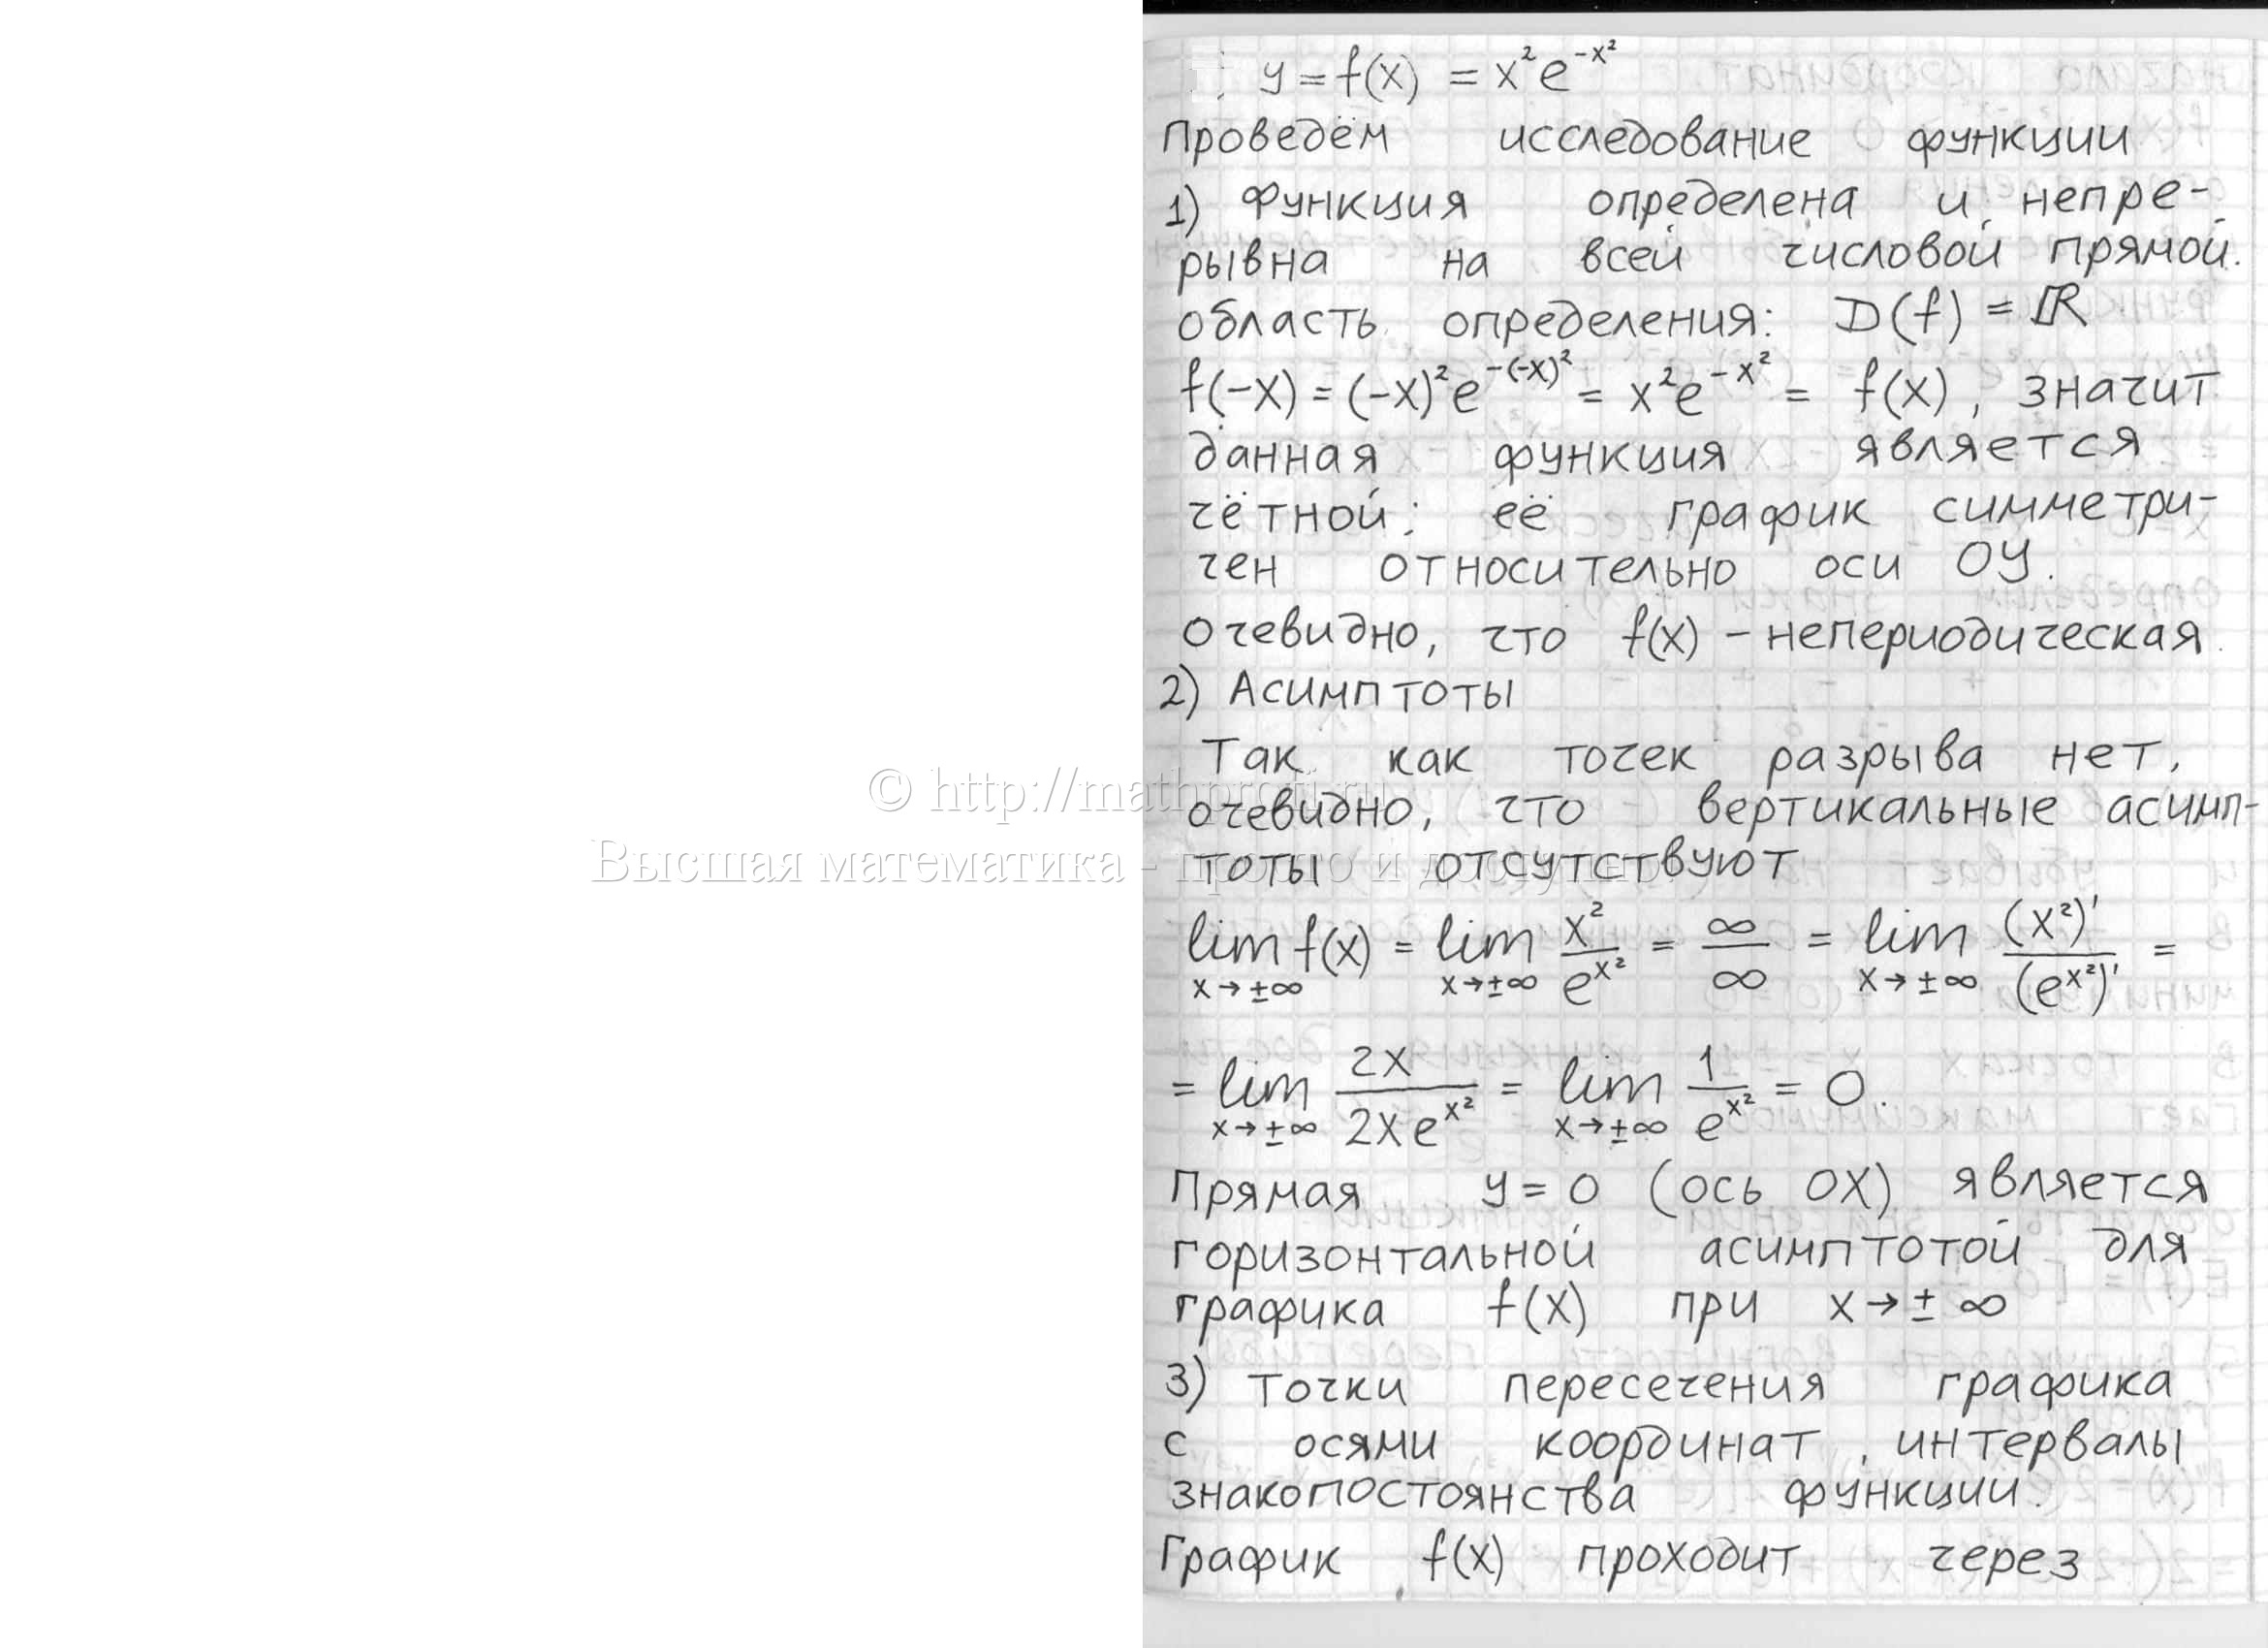 y = f(x) = x²e^{-x²}
Проведём исследование функции
1) Функция определена и непре-
рывна на всей числовой прямой.
область определения: D(f) = ℝ
f(-x) = (-x)²e^{-(-x)²} = x²e^{-x²} = f(x), значит
данная функция является
чётной; её график симметри-
чен относительно оси OY.
очевидно, что f(x) – непериодическая.
2) Асимптоты
Так как точек разрыва нет,
© http://mathprofi.ru
очевидно, что вертикальные асимп-
Высшая математика - просто и доступно!
тоты отсутствуют
lim_{x→±∞} f(x) = lim_{x→±∞} x²/e^{x²} = ∞/∞ = lim_{x→±∞} (x²)'/(e^{x²})' =
= lim_{x→±∞} 2x/2xe^{x²} = lim_{x→±∞} 1/e^{x²} = 0.
Прямая y = 0 (ось OX) является
горизонтальной асимптотой для
графика f(x) при x→±∞
3) Точки пересечения графика
с осями координат, интервалы
знакопостоянства функции.
График f(x) проходит через